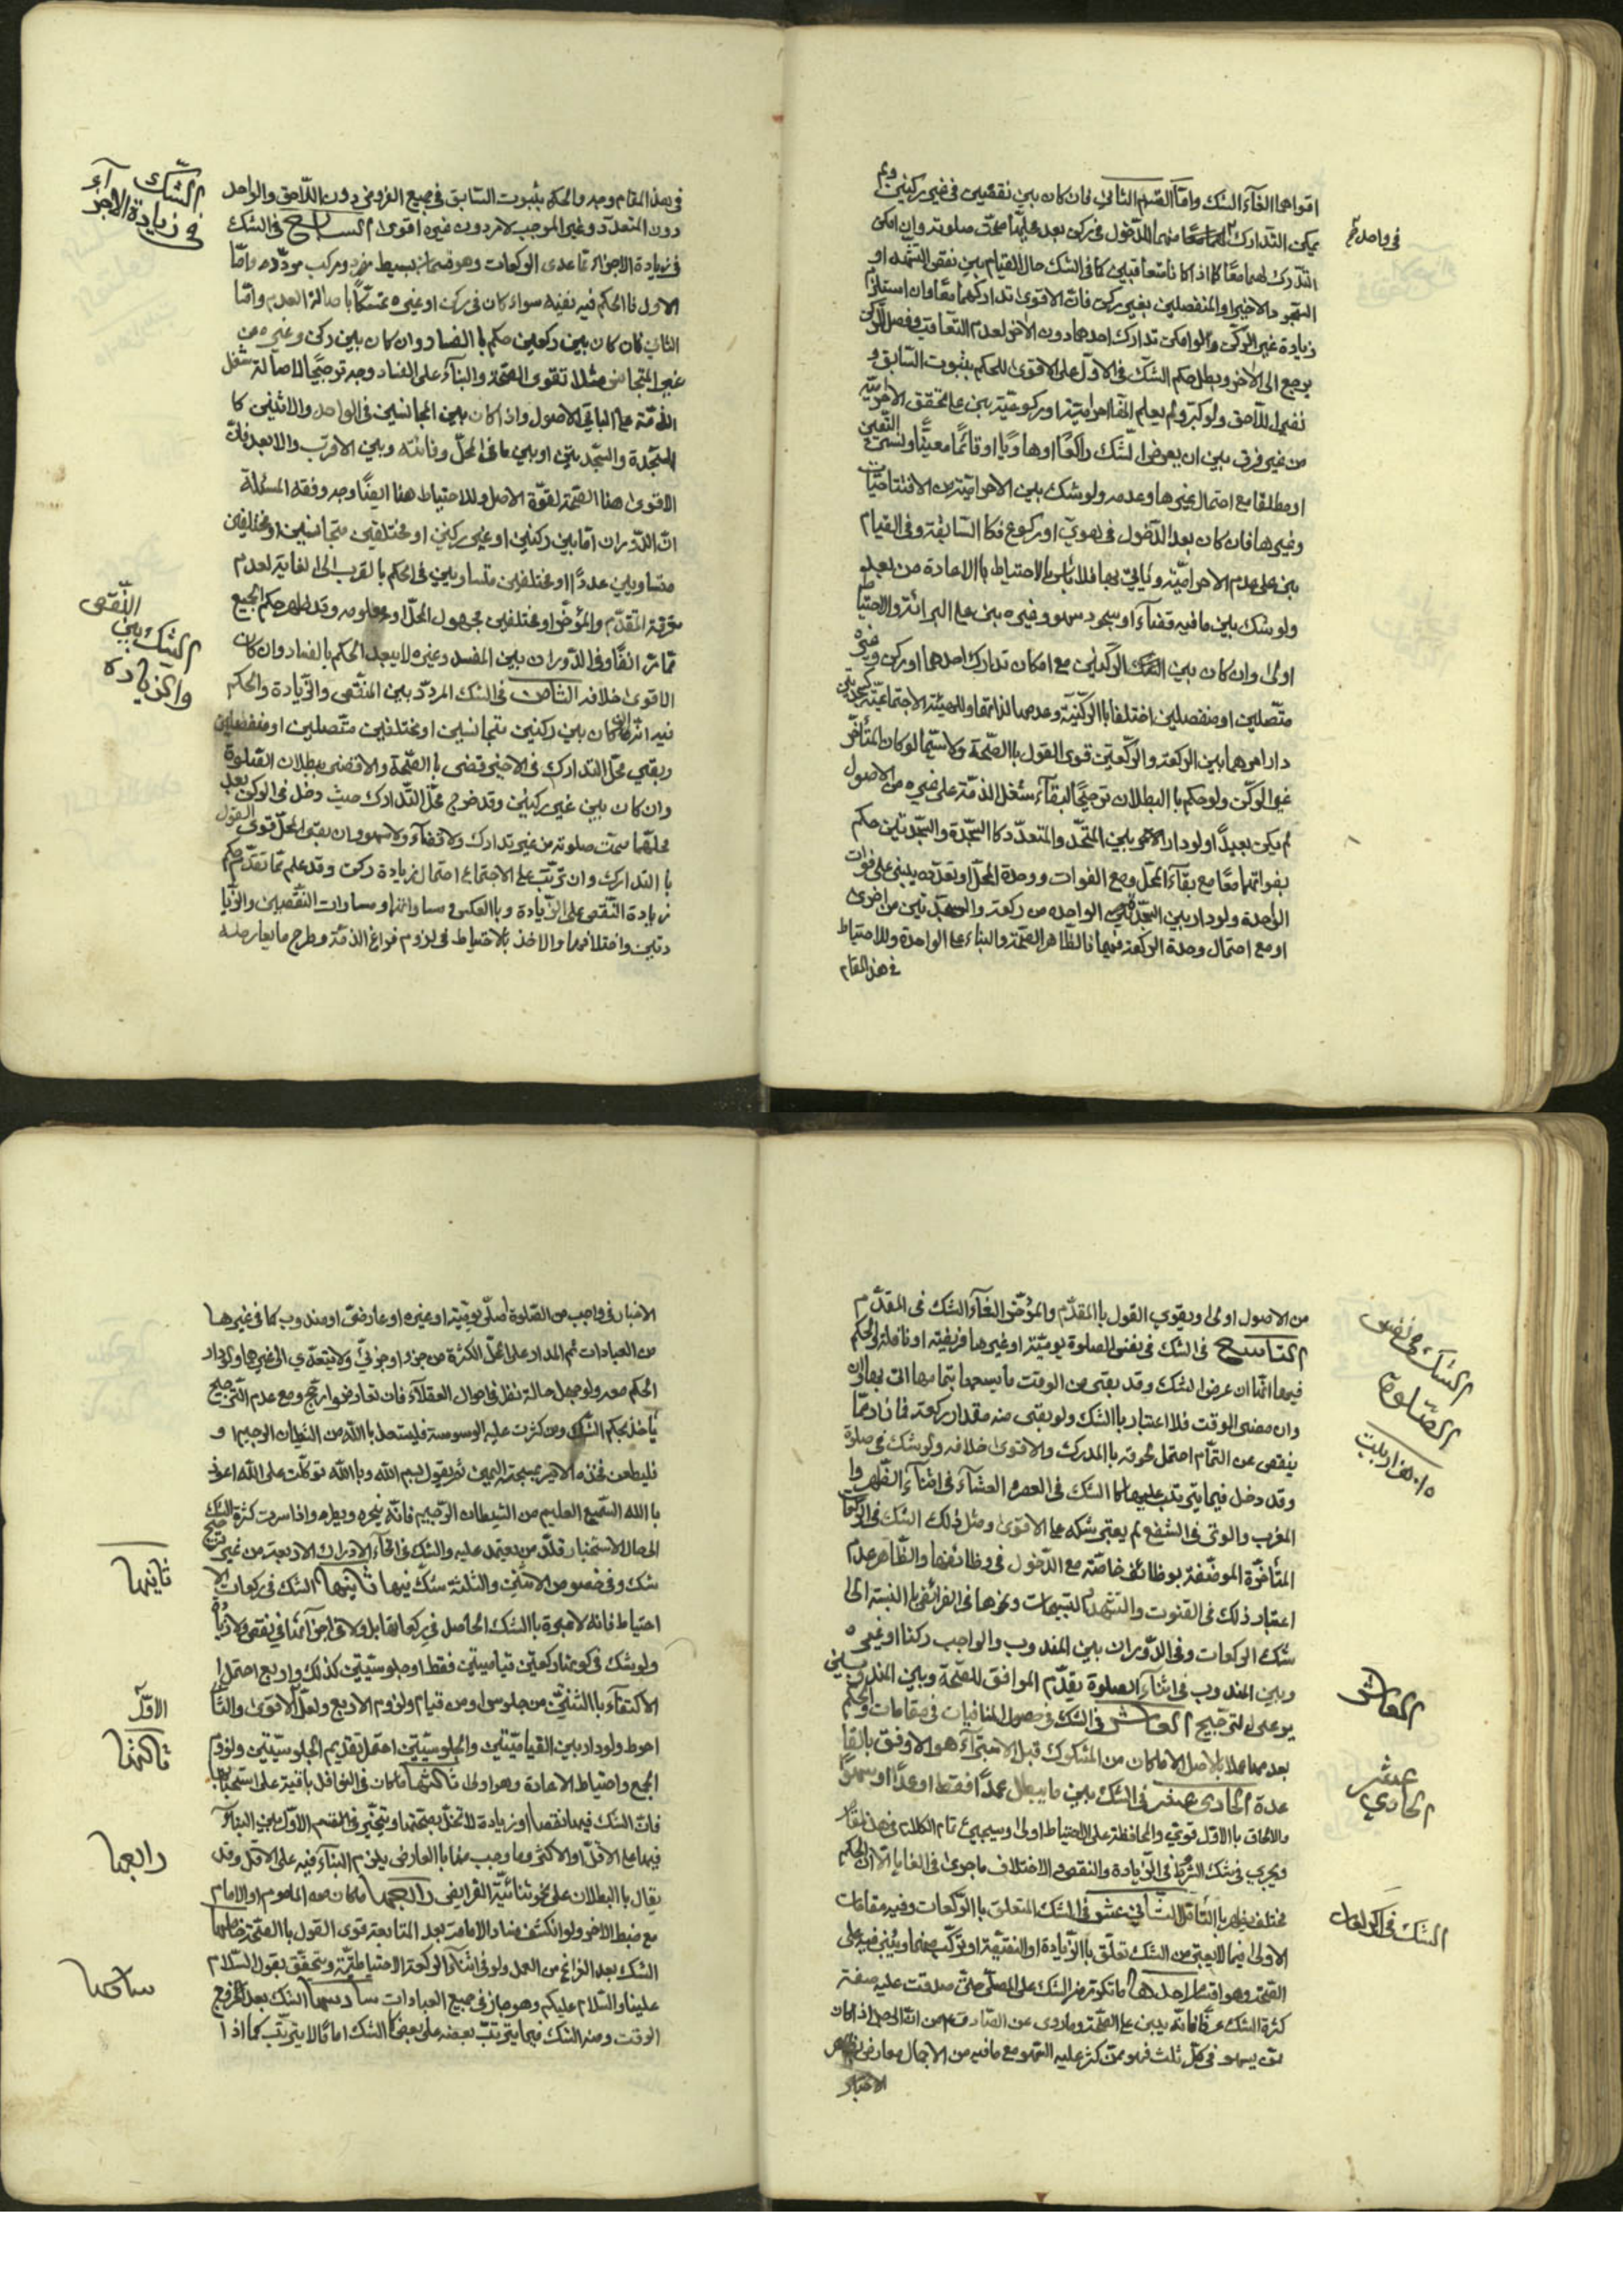 اقواهما الغآء الشك وامّا القسم الثاني فان كان بين نقصين في غير ركنين ولم
يمكن التدارك لهما معًا منهما للدخول في ركن بعد عليهما صحّت صلوته وان امكن
التدارك لهما معًا كما اذا كانا متعاقبين كما في الشك حال القيام بين نقص التشهد او
السجود الاخير او المنفصلين بغير ركن فان الاقوى تداركهما معًا وان استلزم
زيادة غير الركن ولو امكن تدارك احدهما دون الاخر لعدم التعاقب وفصل الركن
يرجع الى الاخر ويبطل حكم الشك في الاوّل على الاقوى للحكم بثبوت السابق و
نفي اللاحق ولو كبّر ولم يعلم انّها احراميّة او ركوعيّة بنى على تحقق الاحراميّة
من غير فرق بين ان يعرض الشك راكعًا او هاويًا او قائمًا معيّنًا ولنسي التعيين
او مطلقا مع احتمال غيرها وعدمه ولو شك بين الاحراميّة من الافتتاحيّات
وغيرها فان كان بعد الدخول في هويّ او ركوع فكالسابقة وفي القيام
بنى على عدم الاحراميّة وياتي بها فلا باس بالاحتياط بالاعادة من بعد
ولو شك بين ما فيه قضآء او سجود سهو وغيره بنى على البرائة والاحتياط
اولى وان كان بين الركنين مع امكان تدارك احدهما او ركن وغيره
متّصلين او منفصلين اختلفا بالركنيّة وعدمها لذاتها او للهيئة الاجتماعيّة كسجدتين
دار امرهما بين الركعة والركعتين قوى القول بالصّحة ولا سيّما لو كان المتأخّر
غير الركن ولو حكم بالبطلان ترجيحًا لبقآء شغل الذمّة على غيره من الاصول
لم يكن بعيدًا ولو دار الامر بين المتّحد والمتعدّد كالسّجدة والسّجدتين حكم
بفواتهما معًا مع بقآء المحلّ ومع الفوات ووحدة المحلّ او تعدّده يبنى على فوات
الواحدة ولو دار بين السّجدة من الواحدة من ركعة والسجدتين من اخرى
او مع احتمال وحدة الركعة فيهما فالظاهر الصّحة والبناء على الواحدة وللاحتياط
في هذا المقام
في واحد
في هذا المقام وجه والحكم بثبوت السّابق في جميع الفروض دون اللاحق والواحد
دون المتعدّد وغير الموجب لامر دون غيره اقوى السابع في الشك
في زيادة الاجزاء ممّا عدى الركعات وهو قسمان بسيط مفرد ومركب مردّد وامّا
الاول فالحكم فيه نفيه سواء كان في ركن او غيره تمسّكًا باصالة العدم وامّا
الثاني فان كان بين ركعين حكم بالفساد وان كان بين ركن وغيره من
غير المتجانس مثلا تقوى الصّحة والبنآء على الفساد وجه ترجيحًا لاصالة شغل
الذمّة على باقي الاصول واذا كان بين المجانسين في الواحد والاثنين كا
لسّجدة والسّجدتين او بين ما في المحلّ وفائته وبين الاقرب والابعد فانّ
الاقوى هنا الصّحة لقوّة الاصل وللاحتياط هنا ايضًا وجه وفقه المسئلة
انّ الدّوران امّا بين ركنين او غير ركنين او مختلفين متجانسين او مختلفين
متساويين عددًا او مختلفين متساويين في الحكم بالقرب الى الغاية لعدم
معرفة المتقدّم والمؤخّر او مختلفين مجهول المحلّ او معلومه وقد ظهر حكم الجميع
ممّا مرّ انفًا وفي الدّوران بين المفسد وغيره لا يبعد الحكم بالفساد وان كان
الاقوى خلافه الثامن في الشك المردّد بين النقص والزّيادة والحكم
فيه انّه ان كان بين ركنين متجانسين او مختلفين متّصلين او منفصلين
وبقي محلّ التدارك في الاخير قضى بالصّحة والا قضى ببطلان الصّلوة
وان كان بين غير ركنين وقد خرج محلّ التّدارك حيث دخل في الركن بعد
محلّها صحّت صلوته من غير تدارك ولا قضآء ولا سهو وان بقى المحلّ قوى القول
بالتدارك وان ترتّب على الاجتماع احتمال زيادة ركن وقد علم ممّا تقدّم حكم
زيادة النّقص على الزّيادة وبالعكس ومساواتهما ومساوات النّقصين والزّيا
دتين واختلافهما والاخذ بالاحتياط في لزوم فراغ الذمّة وطرح ما يعارضه
الشك
في زيادة الاجزآء
الشك بين النّقص
والزّيادة
من الاصول اولى ويقوى القول بالمقدّم والمؤخّر الغآء الشّك في المقدّم
التاسع في الشك في نفس الصلوة يوميّة او غيرها فريضة او نافلة والحكم
فيها انّه ان عرض الشك وقد بقى من الوقت ما يسعها بتمامها اتى بها وان
وان مضى الوقت فلا اعتبار بالشك ولو بقى منه مقدار ركعة فما زاد ممّا
ينقص عن التّمام احتمل لحوقه بالمدرك والاقوى خلافه ولو شك في صلوة
وقد دخل فيما يترتب عليها كما الشك في العصر والعشآء في اثنآء الظهر وا
لمغرب والوتر في الشفع لم يعتبر شكه على الاقوى ومثل ذلك الشك في الركعات
المتأخّرة الموظّفة بوظائف خاصّة مع الدّخول في وظائفها والظّاهر عدم
اعتبار ذلك في القنوت والتشهد التسبيحات ونحوها في الفرائض بالنسبة الى
شك الركعات وفي الدّوران بين المندوب والواجب ركنا او غيره
وبين المندوب في اثنآء الصلوة يقدّم الموافق للصّحة وبين المندوبين
يرعى التّرجيح العاشر في الشك في حصول المنافيات في مقامات والحكم
بعدمها عملا بالاصل الا ما كان من المشكوك قبل الاستبرآء هو الاوفق بالقا
عدة الحادي عشر في الشك بين ما يبطل عمدًا فقط او عمدًا او سهوًا
والالحاق بالاوّل قوي والمحافظة على الاحتياط اولى وسيجيئ تمام الكلام في هذا المقام
ويجري في شك الشّرط في الزّيادة والنقص والاختلاف ما جرى في الغايات الا انّ الحكم
مختلف يظهر بالتّامّل الثّاني عشر في الشك المتعلق بالرّكعات وفيه مقامات
الاولى فيما لا يعتبر من الشك تعلّق بالزّيادة او النقيصة او تركّب منهما ويبنى فيه على
الصّحة وهو اقسام احدها ما تكوثر من الشك على المصلّي حتّى صدقت عليه صفة
كثرة الشك عرفًا فانّه يبنى على الصّحة وما روى عن الصّادق ع من انّه الرجل اذا كان
ممّن يسهو في كلّ ثلث فهو ممّن كثر عليه السّهو مع ما فيه من الاجمال معارض بظاهر
الاخبار
الشك في نفس
الصّلوة
العاشر
الحادي
عشر
الشك في الركعات
الاخبار في واجب من الصّلوة اصليّ يوميّة او غيره او عارضيّ او مندوب كما في غيرها
من العبادات ثم المدار على محلّ الكثرة من جزء او جزئيّ ولا يتعدّى الى غيرها ويدور
الحكم معه ولو جهل حاله نظر في احوال العقلآء فان تعارضوا رجّح ومع عدم التّرجيح
يأخذ بحكم الشّك ومن كثرت عليه الوسوسة فليستعذ بالله من الشيطان الرجيم و
فليطعن فخذه الايسر بمسبحته اليمين ثم يقول بسم الله وبالله توكّلت على الله اعوذ
بالله السّميع العليم من الشيطان الرّجيم فانّه ينحره ويطرده واذا سرت كثرة الشك
الى حال الاستخبار قلّد من يعتمد عليه والشك في اثنآء الادراك الاربعة من غير ترجيح
شك وفي خصوص الاثنين والثلثة شكّ فيها ثانيها الشك في ركعات الا
احتياط فانه لا عبرة بالشك الحاصل في ركعاته بل ولا في اجزآئها في نقص ولا زيادة
ولو شك في كونها ركعتين قياميتين فقط او جلوسيّتين كذلك واربع احتمل
الاكتفآء بالثنتين من جلوس او من قيام ولزوم الاربع ولعلّ الاقوى والثا
احوط ولو دار بين القياميّتين والجلوسيّتين احتمل تقديم الجلوسيّتين ولزوم
الجمع واحتياط الاعادة وهو اولى ثالثها ما كان في النوافل باقية على استحبابها
فانّ الشك فيها نقصا او زيادة لا تخلّ بصحّتها ويتخيّر في القسم الاوّل بين البنآء
فيها على الاقلّ او الاكثر وما وجب منها بالعارض يلزم البنآء فيه على الاقل وقد
يقال بالبطلان على نحو ثنائيّة الفرايض رابعها ما كان معه الماموم او الامام
مع ضبط الاخر ولو انكشف فساد الامامة بعد المتابعة قوى القول بالصّحة خامسها
الشك بعد الفراغ من العمل ولو في اثنآء الركعة الاحتياطيّة ويتحقّق بقول السّلام
علينا والسّلام عليكم وهو جار في جميع العبادات سادسها الشك بعد خروج
الوقت ومنه الشك فيما يترتبّ بعضه على بعض كما الشك امّا لا يترتّب كما اذا
ثانيها
الاوّل
ثالثها
رابعها